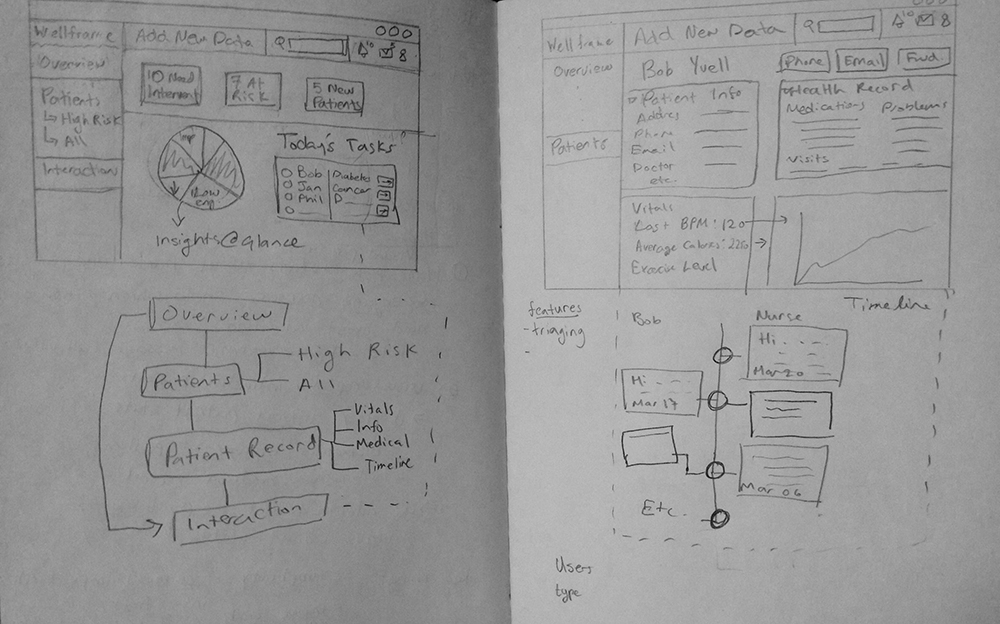 Wellframe
Add New Data
Q
10
Overview
Patients
↳ High Risk
↳ All
Interaction
10 Need
Intervent
7 At
Risk
5 New
Patients
Low
eng
Insights@glance
Today's Tasks
Bob Diabetes
Jan Cancer
Phil D
Overview
Patients
High Risk
All
Patient Record
Vitals
Info
Medical
Timeline
Interaction
Wellframe
Add New Data
Q
10
Overview
Patients
Bob Yuell
Phone
Email
Fwd.
Patient Info
Addres
Phone
Email
Doctor
etc.
Health Record
Medications Problems
Visits
Vitals
Last BPM: 120
Average Calories: 2250
Exercise Level
features
- triaging
-
Timeline
Bob
Nurse
Hi . . .
Mar 20
Hi . . .
Mar 17
Mar 06
Etc.
Users
type